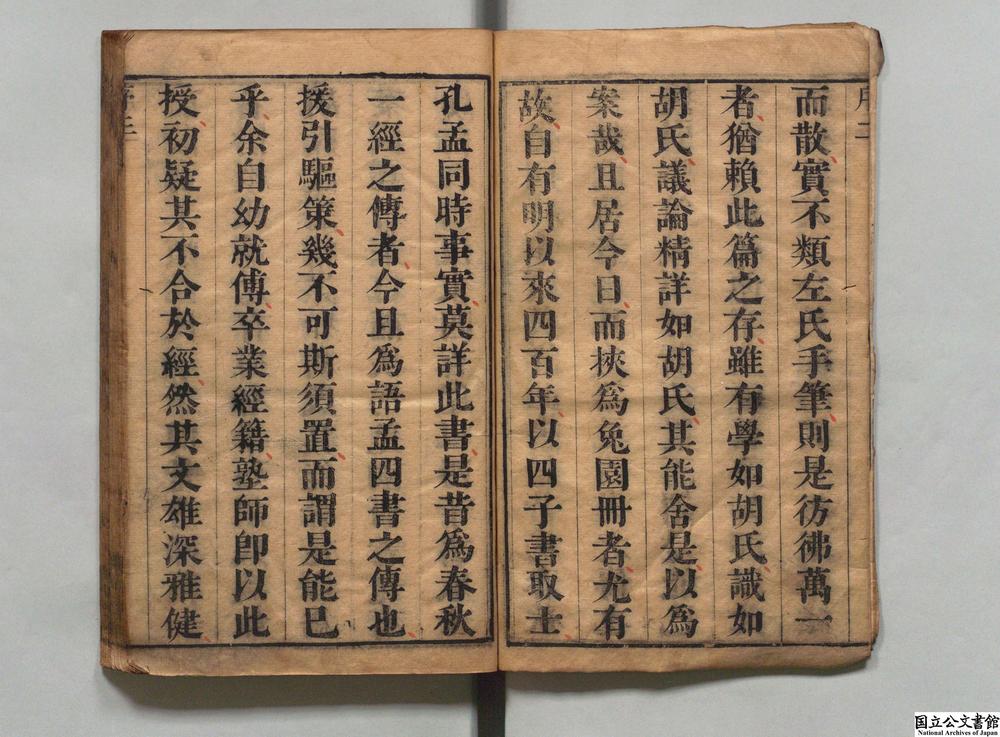 序二
而散實不類左氏手筆則是彷彿萬一
者猶賴此篇之存雖有學如胡氏識如
胡氏議論精詳如胡氏其能舍是以爲
案哉且居今日而挾爲兔園冊者尤有
故自有明以來四百年以四子書取士
孔孟同時事實莫詳此書是昔爲春秋
一經之傳者今且爲語孟四書之傳也
援引驅策幾不可斯須置而謂是能已
乎余自幼就傅卒業經籍塾師卽以此
授初疑其不合於經然其文雄深雅健
序三
国立公文書館
National Archives of Japan